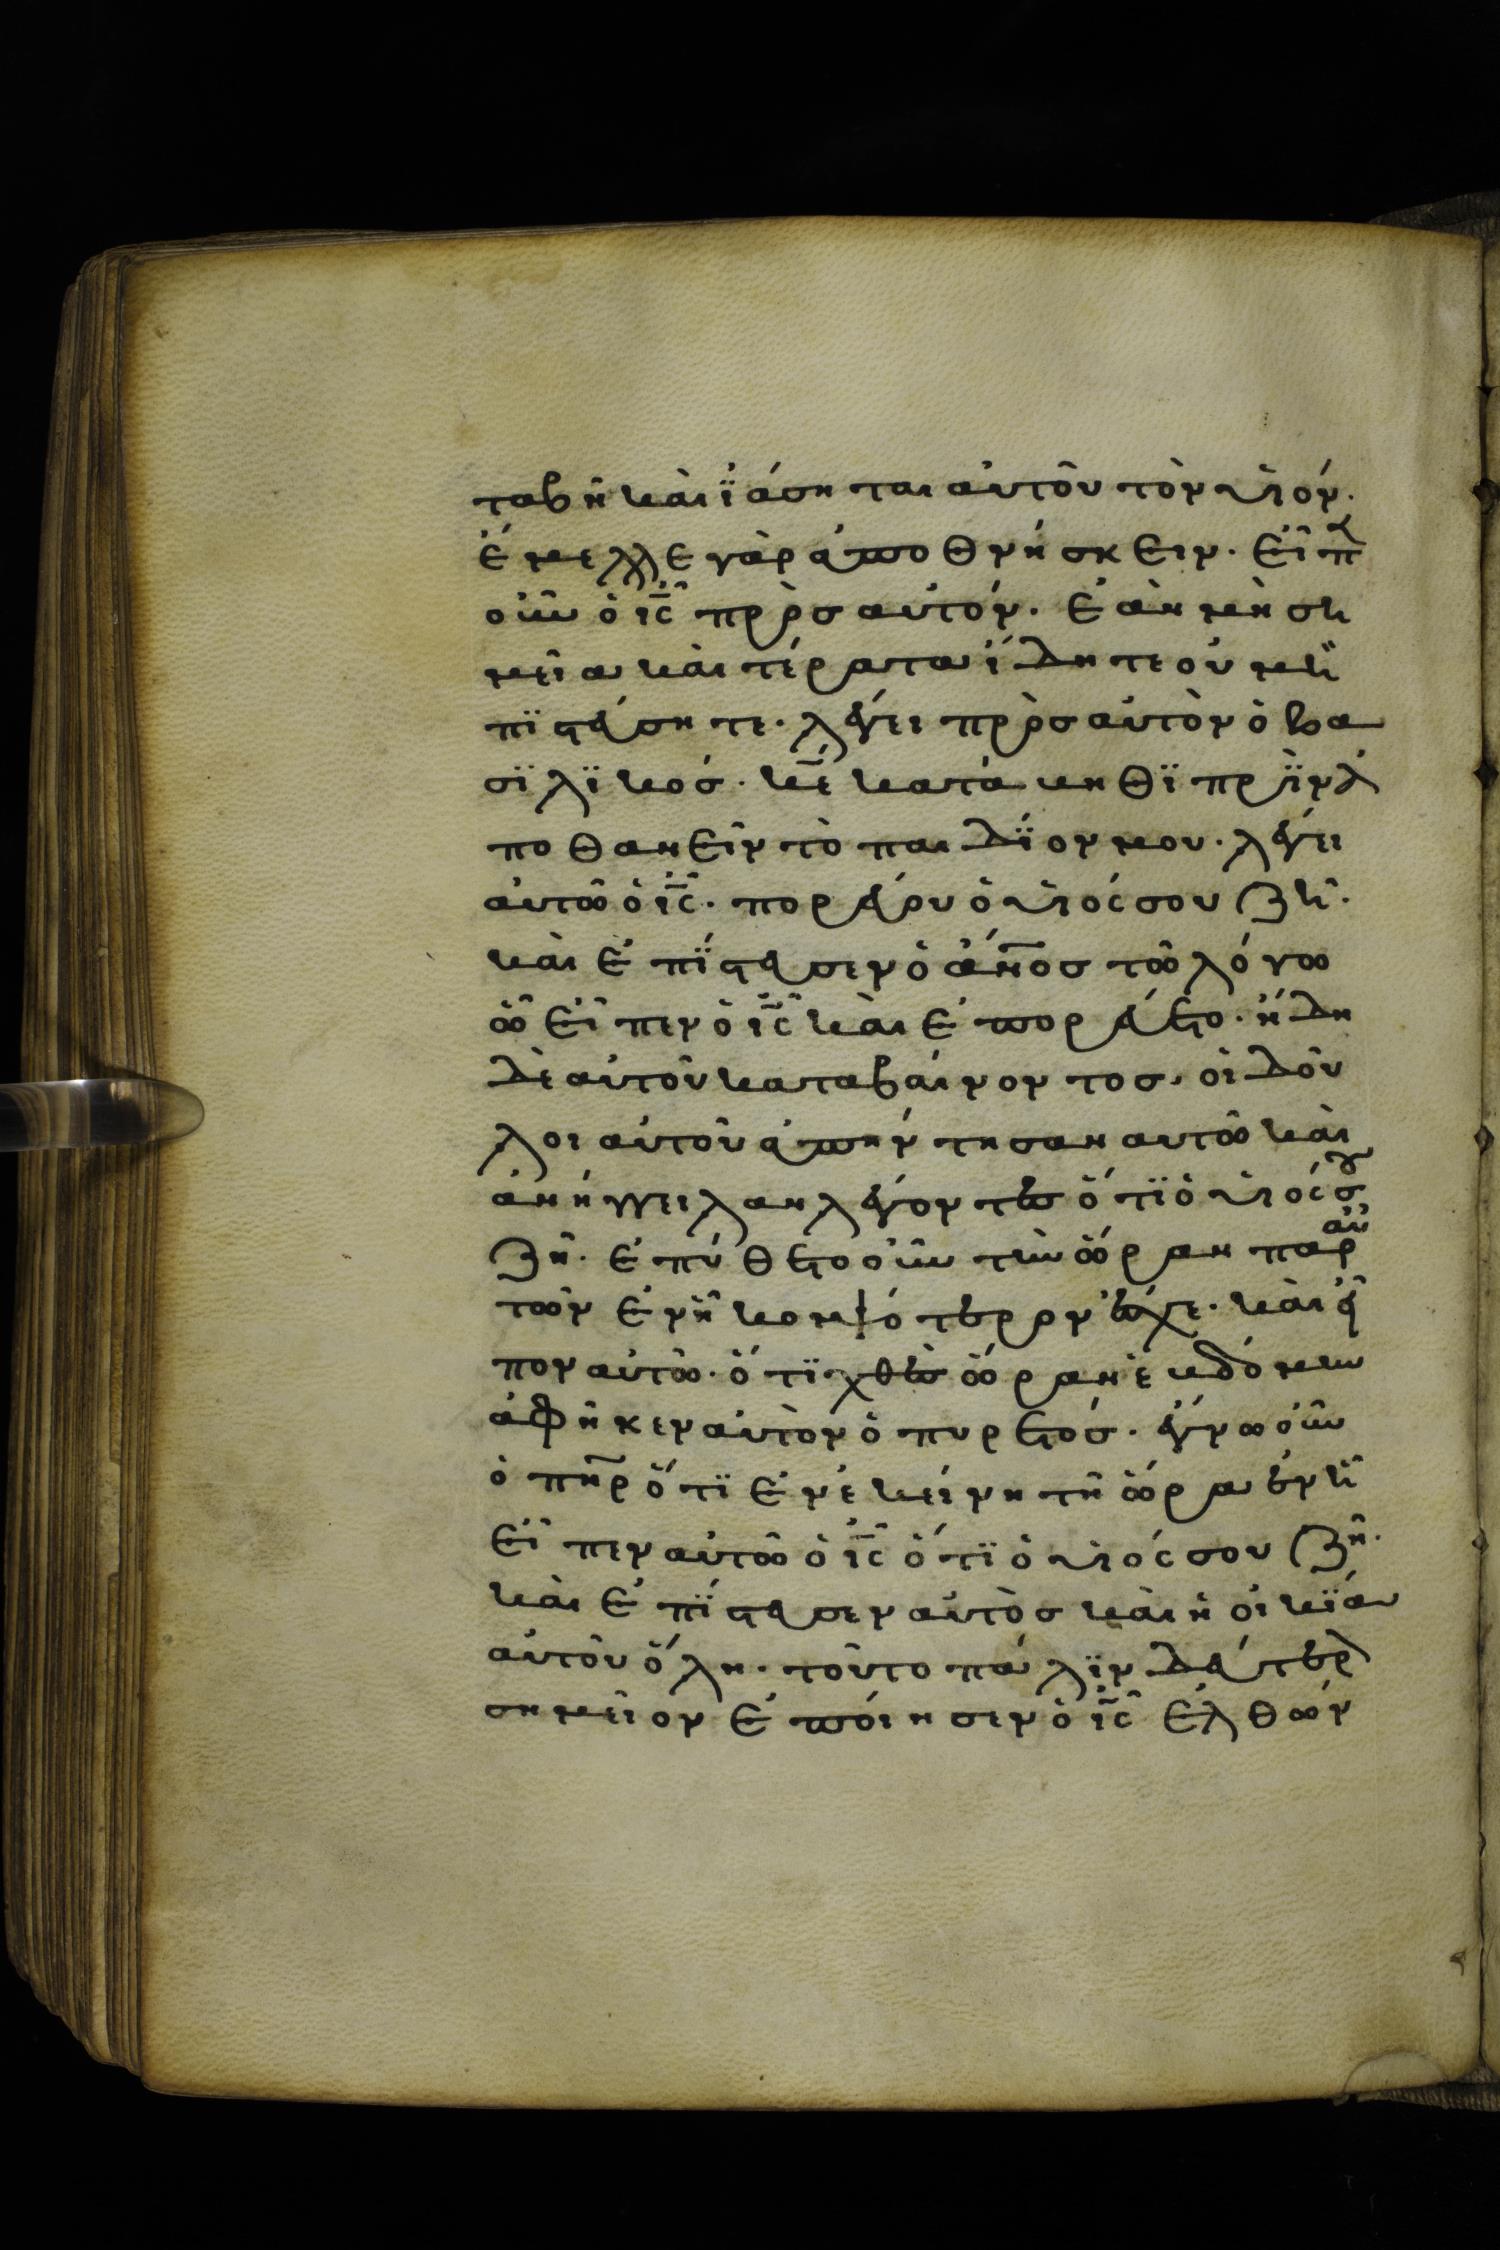 ταβῆ καὶ ϊάσηται αὐτοῦ τὸν υἱόν.
ἔμελλε γὰρ ἀποθνήσκειν. εἶπ
οὖν ὁ ις πρὸς αὐτόν. ἐὰν μὴ ση
μεῖα καὶ τέρατα ἴδητε οὐ μὴ
πϊστεύσητε. λέγει πρὸς αὐτὸν ὁ βα
σϊλϊκός. κε κατάβηθϊ πρὶν ἀ
ποθανεῖν τὸ παιδΐον μου. λέγει
αὐτῶ ὁ ις. πορεύου ὁ υἱός σου ζῆ.
καὶ ἐπΐστευσεν ὁ ἄνος τῶ λόγω
ὧ εἶπεν ὁ ις καὶ ἐπορεύετο. ἤδη
δὲ αὐτοῦ καταβαίνοντος, οἱ δοῦ
λοι αὐτοῦ ἀπήντησαν αυτῶ καὶ
ἀνήγγειλαν λέγοντες ὅτϊ ὁ υἱός σου
ζῆ. ἐπύθετο οὖν τὴν ὥραν παρ αὐ
τῶν ἐν ἧ κομψότερον ἔσχε. καὶ εἶ
πον αὐτῶ. ὅτϊ χθὲς ὥραν ἑβδόμην
ἀφῆκεν αὐτὸν ὁ πυρετός. ἔγνω οὖν
ὁ πηρ ὅτϊ ἐν ἐκείνη τῆ ὥρα ἐν ἧ
εἶπεν αὐτῶ ὁ ις ὅτϊ ὁ υἱός σου ζῆ.
καὶ ἐπΐστευσεν αὐτὸς καὶ ἡ οἰκΐα
αὐτοῦ ὅλη. τοῦτο πάλϊν δεύτερ
σημεῖον ἐποίησεν ὁ ις ἐλθών